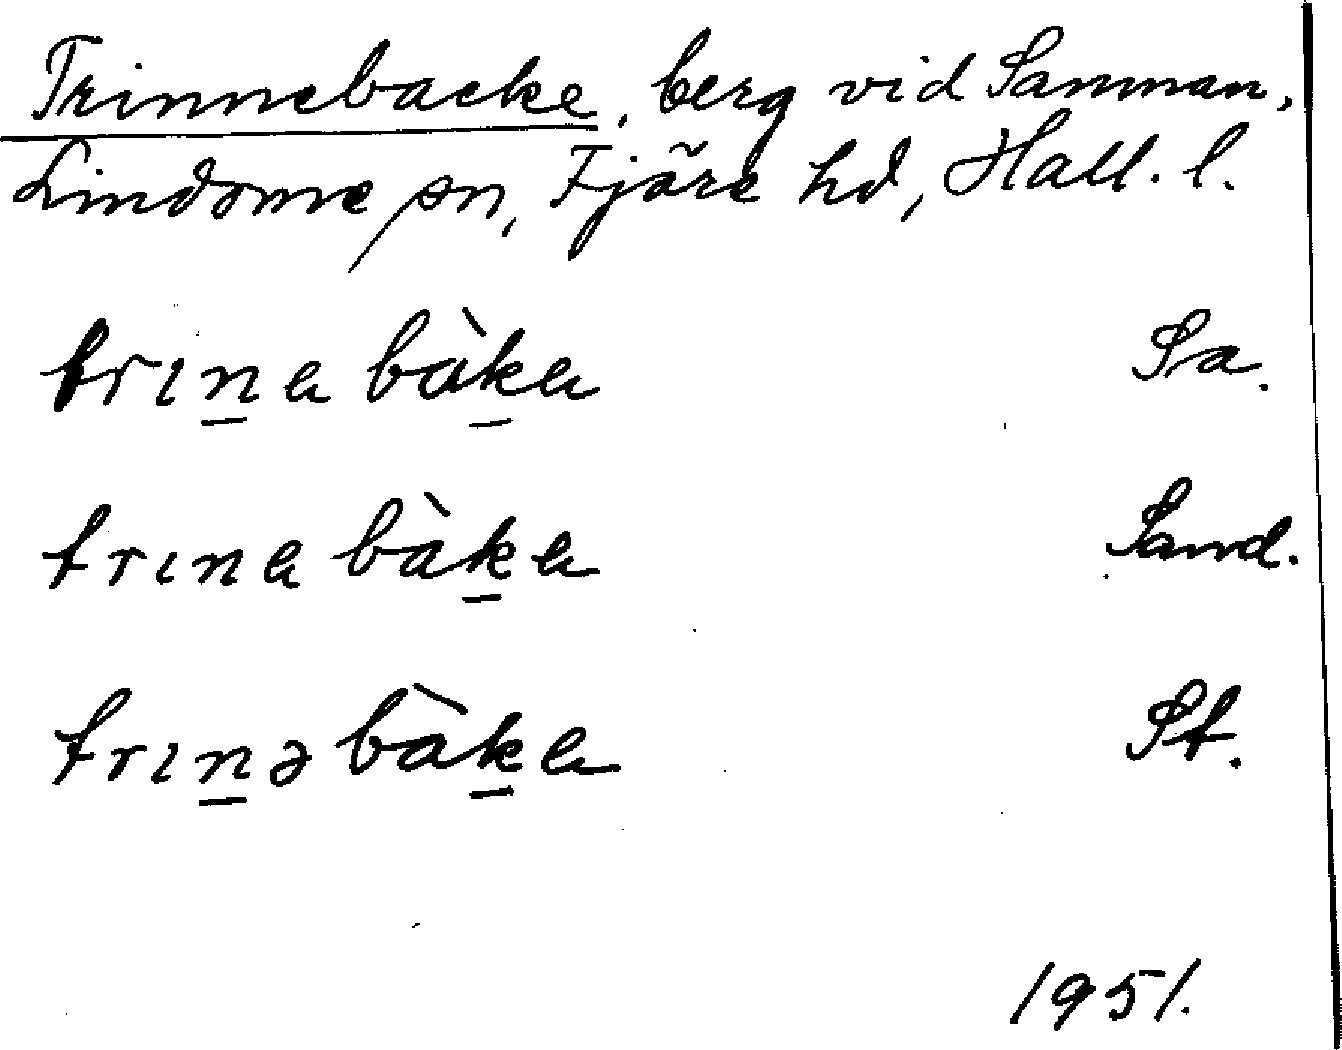 Trinnebacke, berg vid Samman,
Lindome sn, Fjäre hd, Hall. l.
trın̲a bàk̲a Sa.
trına bàk̲a Sand.
trın̲ə bàk̲a St.
1951.